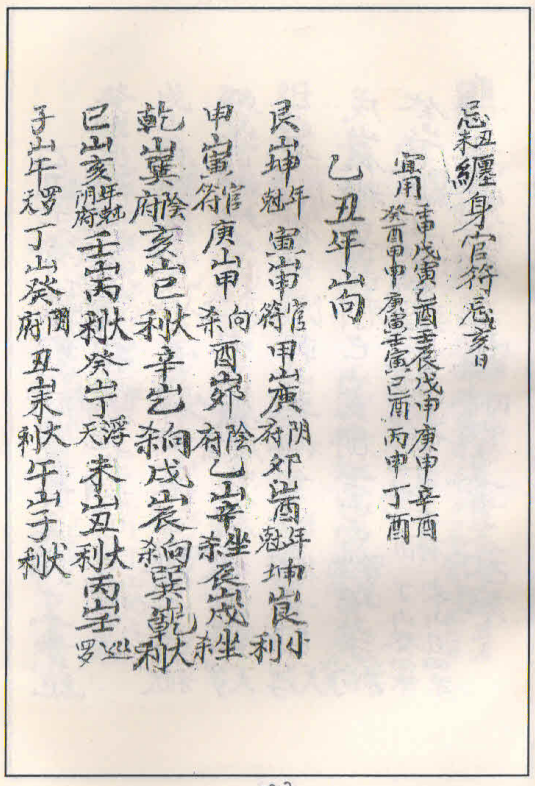 忌丑未纏身官符忌戌亥日
宜用壬申戊寅乙酉壬辰戊申庚申辛酉
癸酉甲申庚寅壬寅己酉丙申丁酉
乙丑年山向
艮山坤年尅寅山申官符甲山庚阴府卯山酉年尅坤山艮小利
申山寅官符庚山甲向杀酉山卯陰府乙山辛坐杀辰山戌坐杀
乾山巽陰府亥山巳大利辛山乙向杀戌山辰向杀巽山乾大利
巳山亥年尅阴府壬山丙大利癸山丁浮天未山丑大利丙山壬巡罗
子山午罗天丁山癸阴府丑山未大利午山子大利